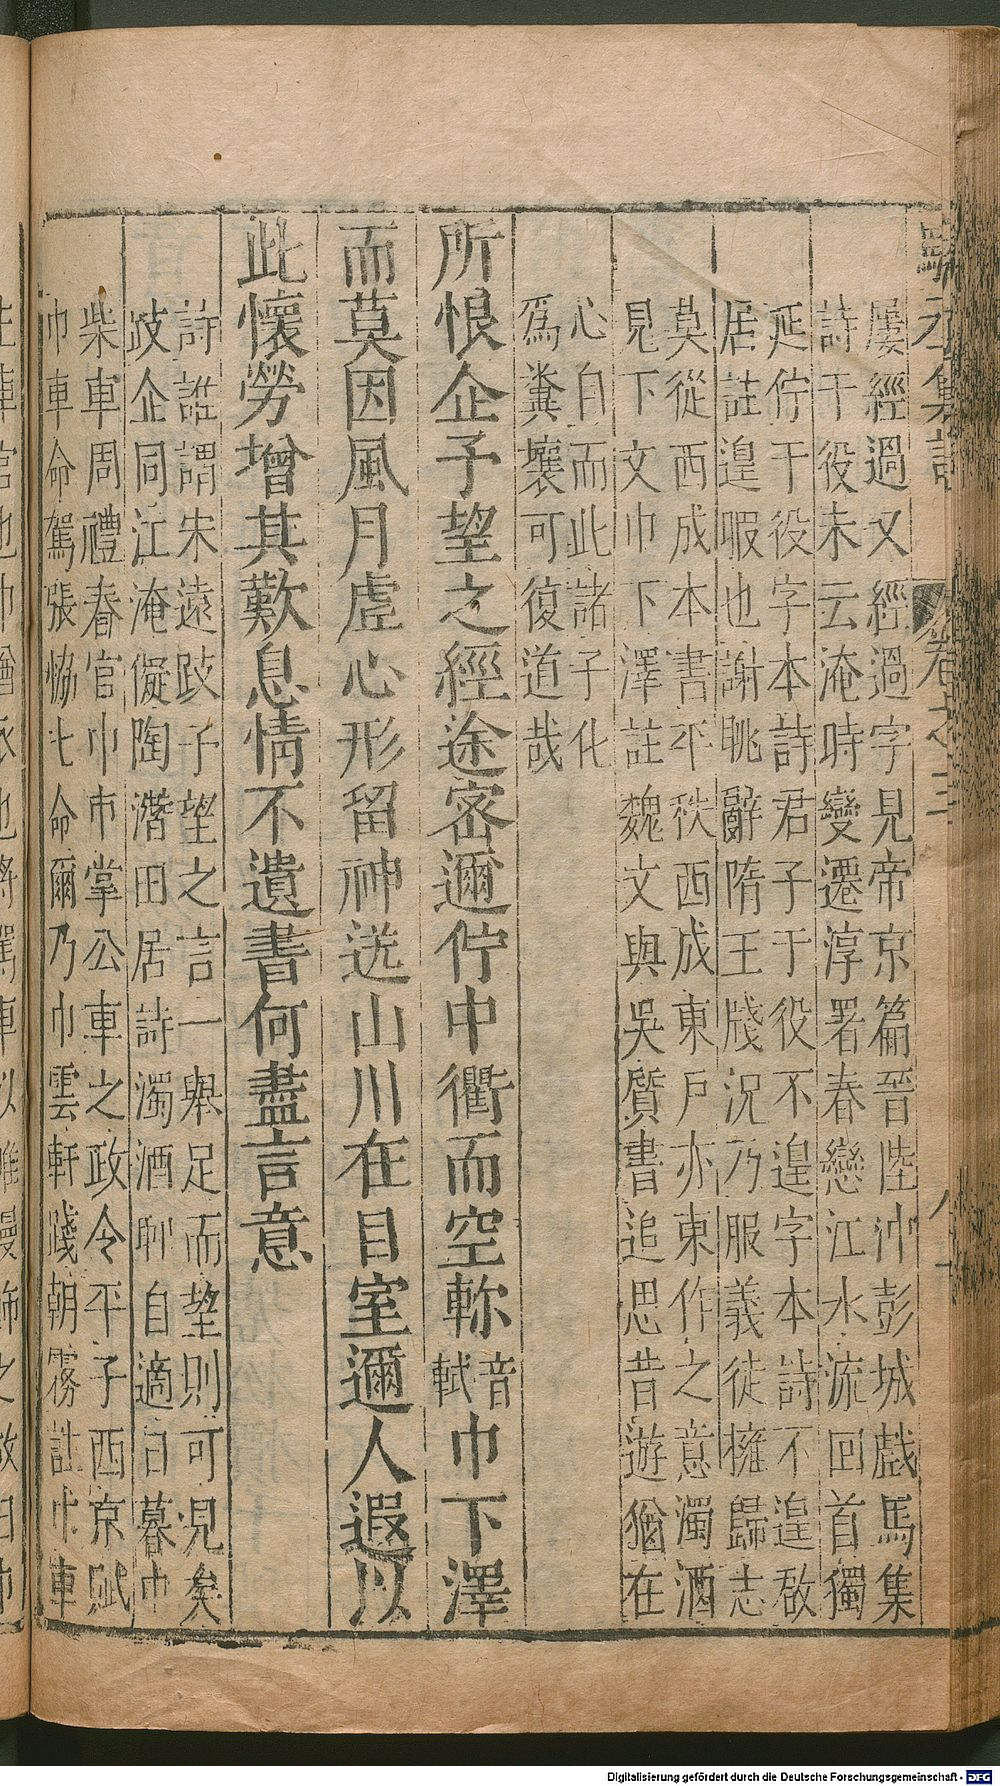 屢經過又經過字見帝京篇晉陸沖彭城戲馬集
詩于役未云淹時變遷淳署春戀江水流回首獨
延佇于役字本詩君子于役不遑字本詩不遑啟
居註遑暇也謝眺辭隋王牋況乃服義徒擁歸志
莫從西成本書平秩西成東戶亦東作之意濁酒
見下文巾下澤註魏文與吳質書追思昔遊猶在
心自而此諸子化
爲糞壤可復道哉
所恨企予望之經途密邇佇中衢而空軫
音
軾
巾下澤
而莫因風月虛心形留神送山川在目室邇人遐以
此懷勞增其歎息情不遺書何盡言意
詩誰謂宋遠跂予望之言一舉足而望則可見矣
跂企同江淹儗陶潛田居詩濁酒聊自適日暮巾
柴車周禮春官巾市掌公車之政令平子西京賦
巾車命駕張協七命爾乃巾雲軒踐朝霧註巾車
卷之三
Digitalisierung gefördert durch die Deutsche Forschungsgemeinschaft - DFG